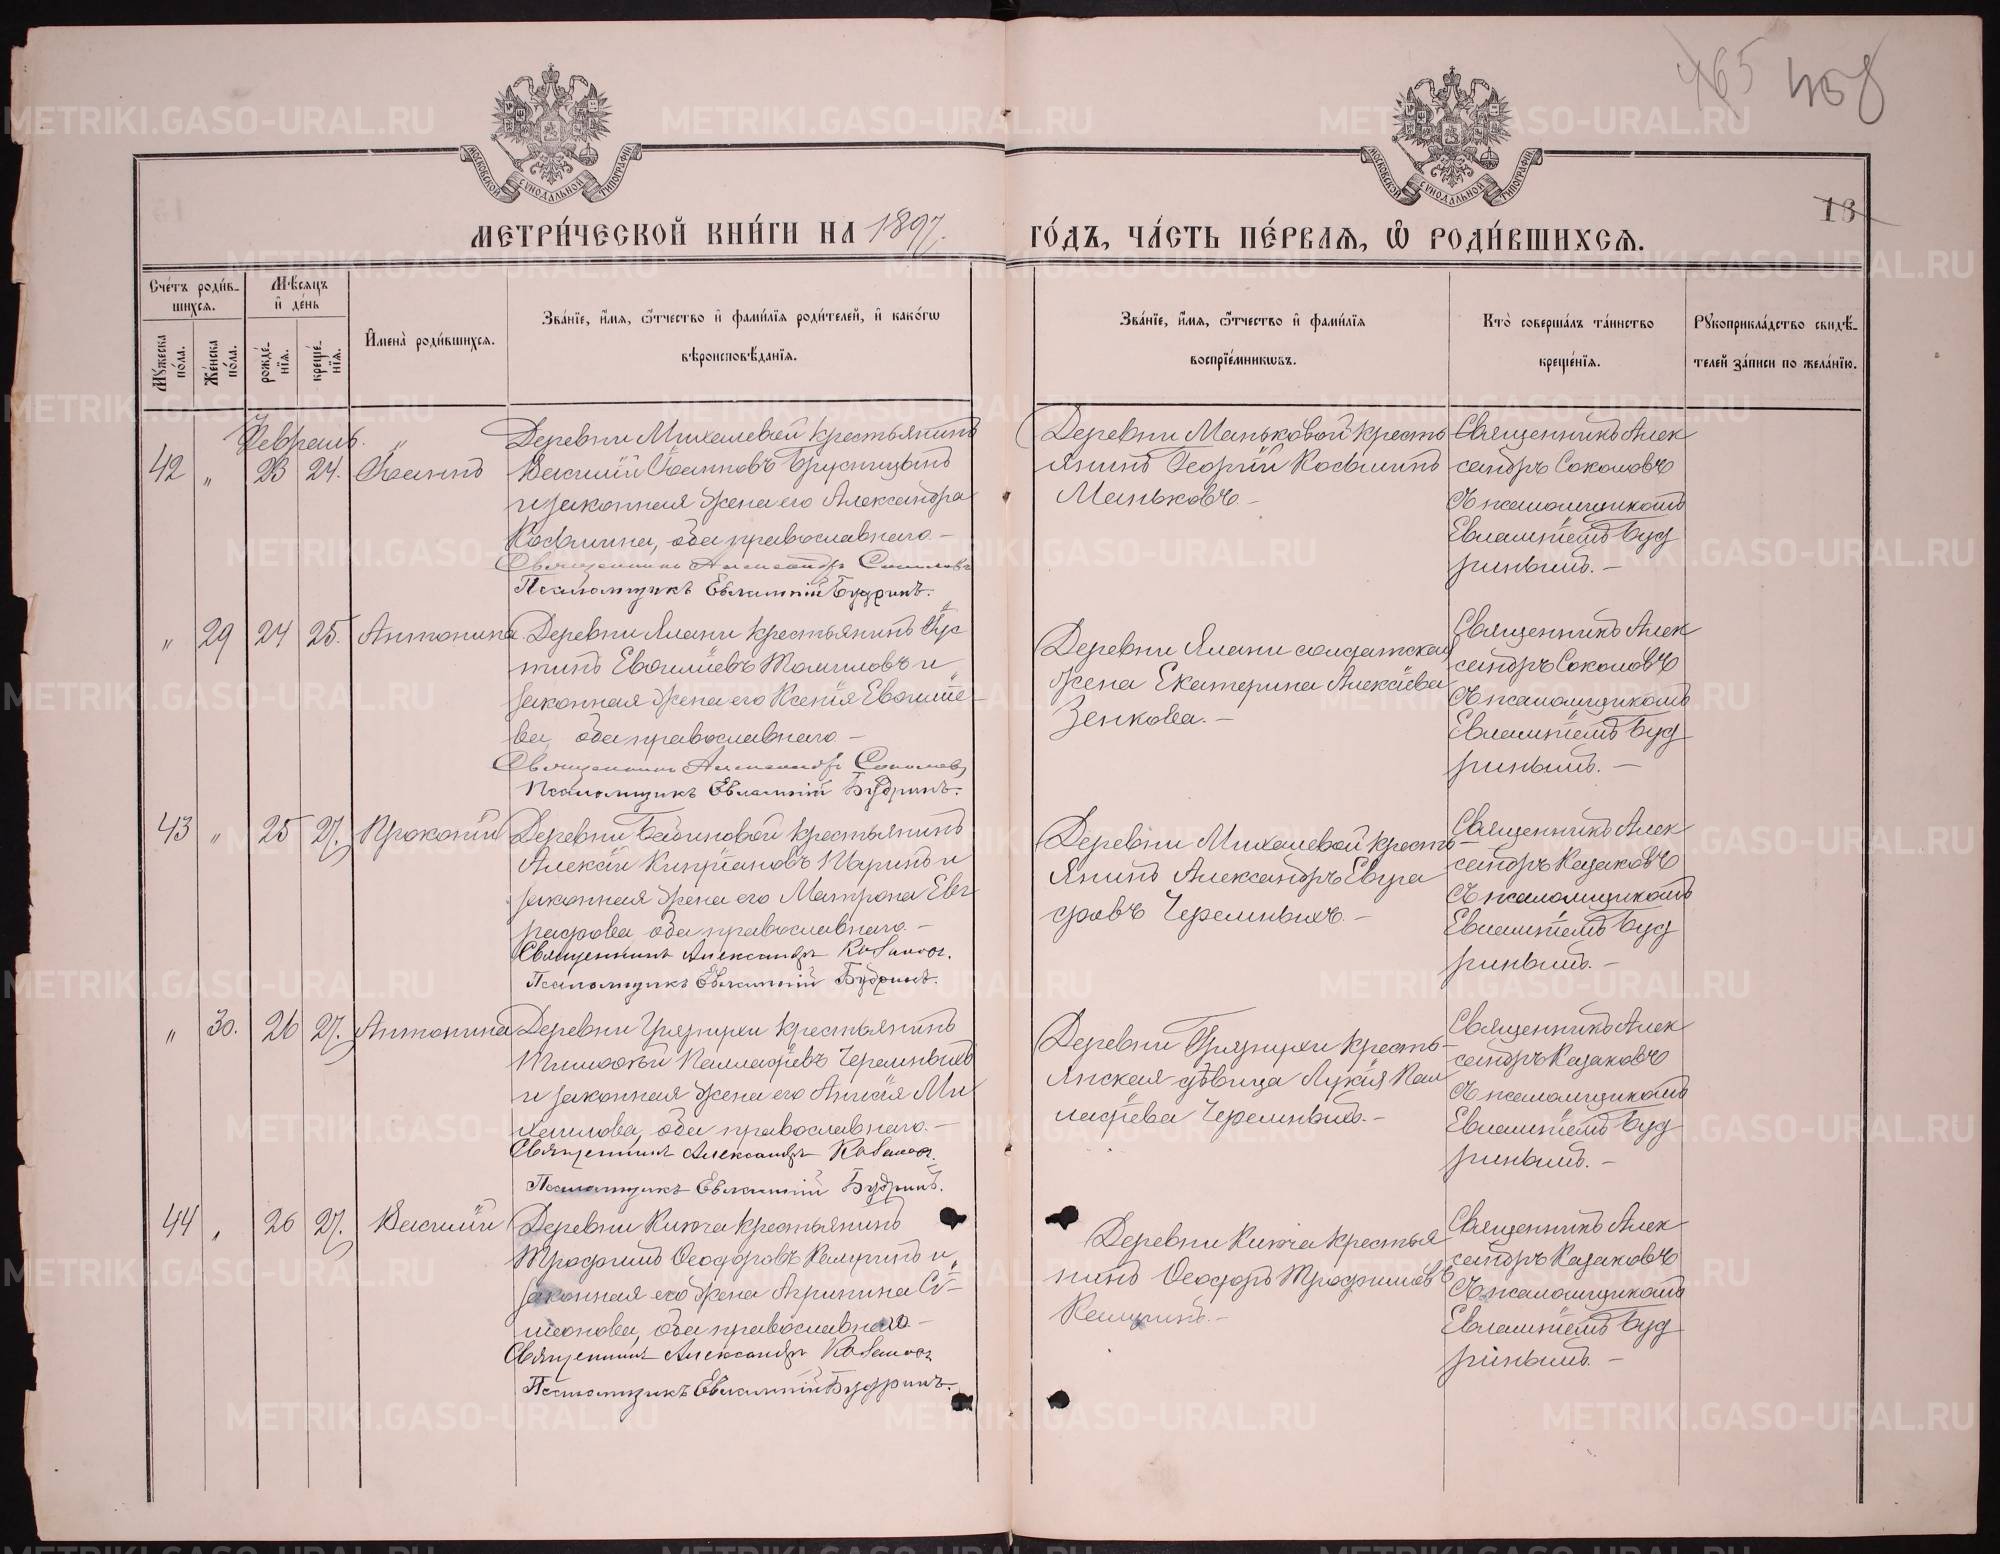 465 458
МОСКОВСКОЙ СУНОДАЛЬНОЙ ТИПОГРАФІИ
МОСКОВСКОЙ СУНОДАЛЬНОЙ ТИПОГРАФІИ
18
МЕТРИ́ЧЕСКОЙ КНИ́ГИ НА 1897.
ГО́ДЪ, ЧА́СТЬ ПЕ́РВАЯ, Ѽ РОДИ́ВШИХСЯ.
Сче́тъ роди́вшихся.
Му́жеска по́ла.
Же́нска по́ла.
Мѣ́сяцъ и де́нь
рожде́нія.
креще́нія.
И҆мена̀ роди́вшихся.
Зва́ніе, и҆́мя, ѻ҆́тчество и҆ фами́лія роди́телей, и҆ како́гѡ
вѣроисповѣ́данія.
Зва́ніе, и҆́мя, ѻ҆́тчество и҆ фами́лія
воспріе́мникѡвъ.
Кто̀ соверша́лъ та́инство
креще́нія.
Рꙋкоприкла́дство свидѣ́-
телей за́писи по жела́нію.
Февраль.
42 " 23 24. Іоаннъ
Деревни Михалевой крестьянинъ
Василій Іоанновъ Брусницынъ
и законная жена его Александра
Косьмина, оба православнаго. –
Священникъ Александръ Соколовъ
Псаломщикъ Евлампій Будринъ.
Деревни Маньковой кресть
янинъ Георгій Косьминъ
Маньковъ. –
Священникъ Алек
сандръ Соколовъ
съ псаломщикомъ
Евлампіемъ Буд
ринымъ. –
" 29 24 25. Антонина
Деревни Ялани крестьянинъ Іус
тинъ Евѳиміевъ Томиловъ и
законная жена его Ксенія Евѳиміе-
ва, оба православнаго –
Священникъ Александръ Соколовъ
Псаломщикъ Евлампій Будринъ.
Деревни Ялани солдатская
жена Екатерина Алексіева
Зенкова. –
Священникъ Алек
сандръ Соколовъ
съ псаломщикомъ
Евлампіемъ Буд
ринымъ. –
43 " 25 27. Прокопій
Алексій Кипріановъ
законная жена его Матрона Евг
рафова, оба православнаго. –
Священникъ Александръ Казаковъ.
Псаломщикъ Евлампій Будринъ.
Деревни Михалевой кресть-
янинъ Александръ Евгра
фовъ Черемныхъ. –
Священникъ Алек
сандръ Казаковъ
съ псаломщикомъ
Евлампіемъ Буд
ринымъ. –
" 30. 26 27. Антонина
Деревни Грязнухи крестьянинъ
Тимоѳей Палладіевъ Черемныхъ
и законная жена его Анисія Ми
хаилова, оба православнаго. –
Священникъ Александръ Казаковъ.
Псаломщикъ Евлампій Будринъ.
Деревни Грязнухи кресть-
янская дѣвица Лукія Пал
ладіева Черемныхъ. –
Священникъ Алек
сандръ Казаковъ
съ псаломщикомъ
Евлампіемъ Буд
ринымъ. –
44 " 26 27. Василій
Деревни Ключа крестьянинъ
Трофимъ Ѳеодоровъ Калугинъ и
законная его жена Агрипина Сѵ-
меонова, оба православнаго. –
Священникъ Александръ Казаковъ
Псаломщикъ Евлампій Будринъ.
Деревни Ключа крестья
нинъ Ѳеодоръ Трофимовъ
Калугинъ. –
Священникъ Алек
сандръ Казаковъ
съ псаломщикомъ
Евлампіемъ Буд
ринымъ. –